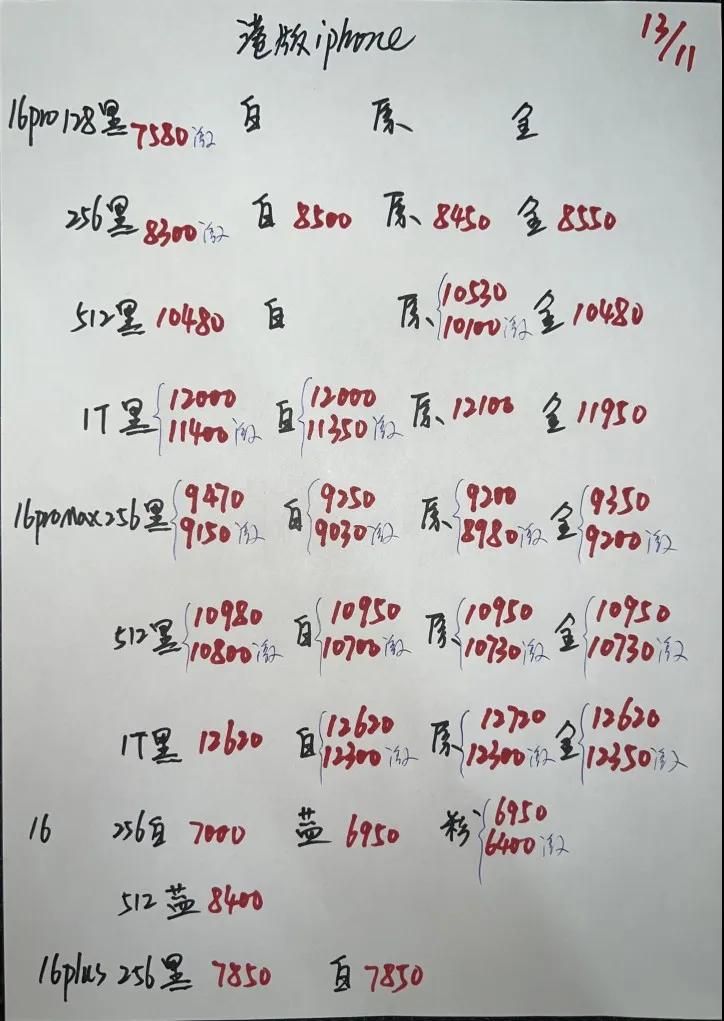 港版iphone 13/11
16pro 128黑 7580激 白 原、 金
256黑 8300激 白 8500 原、 8450 金 8550
512黑 10480 白 原、 10530 10100激 金 10480
1T黑 12000 11400激 白 12000 11350激 原、 12100 金 11950
16promax 256黑 9470 9150激 白 9250 9030激 原、 9200 8980激 金 9350 9200激
512黑 10980 10800激 白 10950 10700激 原、 10950 10730激 金 10950 10730激
1T黑 12620 白 12620 12300激 原、 12720 12300激 金 12620 12350激
16 256白 7000 蓝 6950 粉 6950 6400激
512蓝 8400
16plus 256黑 7850 白 7850